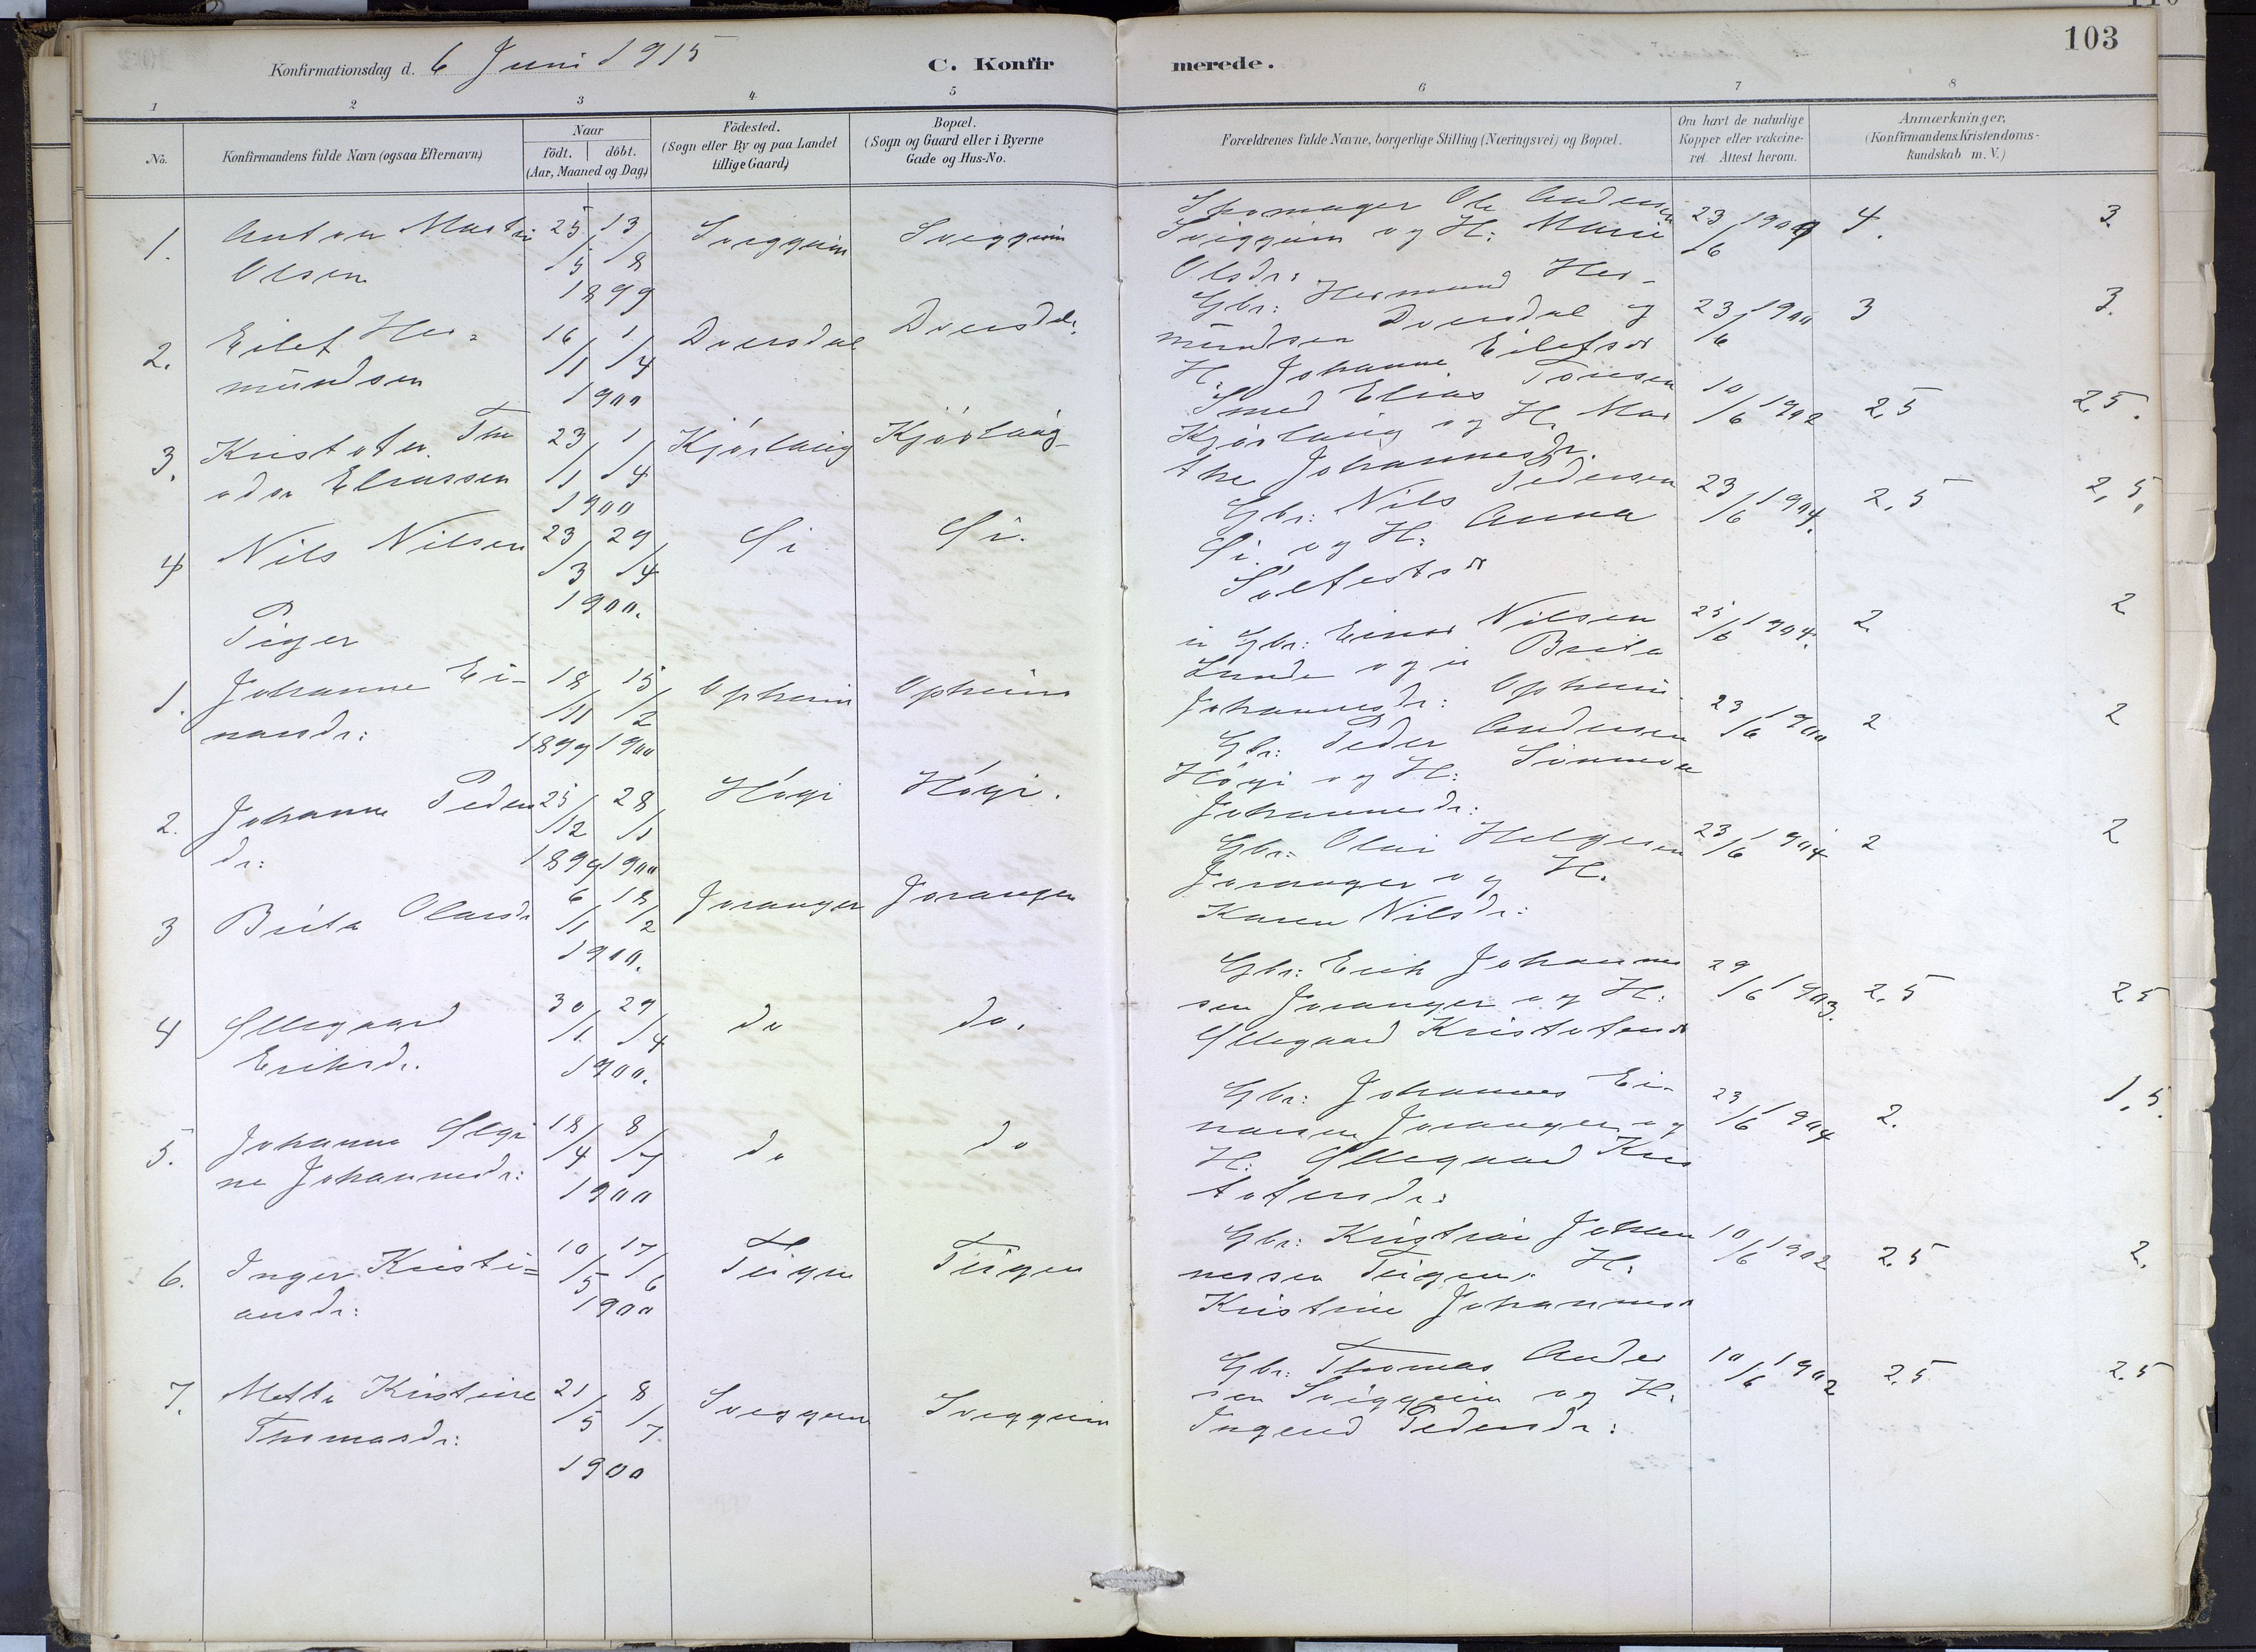 103
Konfirmationsdag d. 6 Juni 1915
C. Konfirmerede.
1 2 3 4 5 6 7 8
No.
Konfirmandens fulde Navn (ogsaa Efternavn)
Naar
födt. döbt.
(Aar, Maaned og Dag)
Födested.
(Sogn eller By og paa Landet
tillige Gaard)
Bopæl.
(Sogn og Gaard eller i Byerne
Gade og Hus-No.
Forældrenes fulde Navne, borgerlige Stilling (Næringsvei) og Bopæl.
Om havt de naturlige
Kopper eller vakcine-
ret. Attest herom.
Anmærkninger,
(Konfirmandens Kristendoms-
kundskab m. V.)
1. Anton Martin 25/5 13/8 Sviggum Sviggum
Olsen 1899
Skomager Ole Andersen 23/6 1909 4. 3.
Sviggum og H: Marie
Olsdr:
2. Eilef Her= 16/1 1/4 Dversdal Dversdal
mundsen 1900
Gbr: Hermund Her- 23/6 1900 3 3.
mundsen Dversdal og
H. Johanne Eilefsdr
3. Kristofer The 23/1 1/4 Kjørlaug Kjørlaug
odor Eliassen 1900
Smed Elias Tørresen 10/6 1902 2,5 2,5.
Kjørlaug og H. Mar
the Johannesdr.
4 Nils Nilsen 23/3 29/4
1900.
Gbr: Nils Pedersen 23/6 1904. 2,5 2,5.
og H: Anna
Piger
1. Johanne Ei- 18/11 15/2 Opheim Opheim
narsdr: 1899 1900
Gbr: Einar Nilsen 25/6 1904. 2 2
Lunde og Brita
Johannesdr: Opheim
2. Johanne Peders 25/12 28/1 Høgi Høgi.
dr: 1899 1900
Gbr: Peder Andersen 23/6 1900 2 2
Høgi og H:
Johannesdr:
3 Brita Olavsdr 6/1 18/2 Joranger Joranger
1900.
Gbr: Olav Helgesen 23/6 1904 2 2
Joranger og H.
Karen Nilsdr:
4 Ollegaard 30/1 29/4 do do.
Eriksdr. 1900.
Gbr: Erik Johannes 29/6 1903. 2,5 2,5
sen Joranger og H:
Ollegaard Kristofersdr
5. Johanne Olgi 18/4 8/7 do do
ne Johannesdr: 1900
Gbr: Johannes Ei- 23/6 1904 2. 1,5.
narsen Joranger og
H: Ollegaard Kris
tofersdr.
6. Inger Kristi= 10/5 17/6 Teigen Teigen
ansdr: 1900
Gbr: Kristian Johan 10/6 1902 2,5 2.
nessen Teigen. H.
Kristine Johannesdr
7. Metta Kristine 21/5 8/7 Sviggum Sviggum
Thomasdr: 1900
Gbr: Thomas Ander 10/6 1902 2,5 2,5
sen Sviggum og H.
Ingerid Pedersdr: